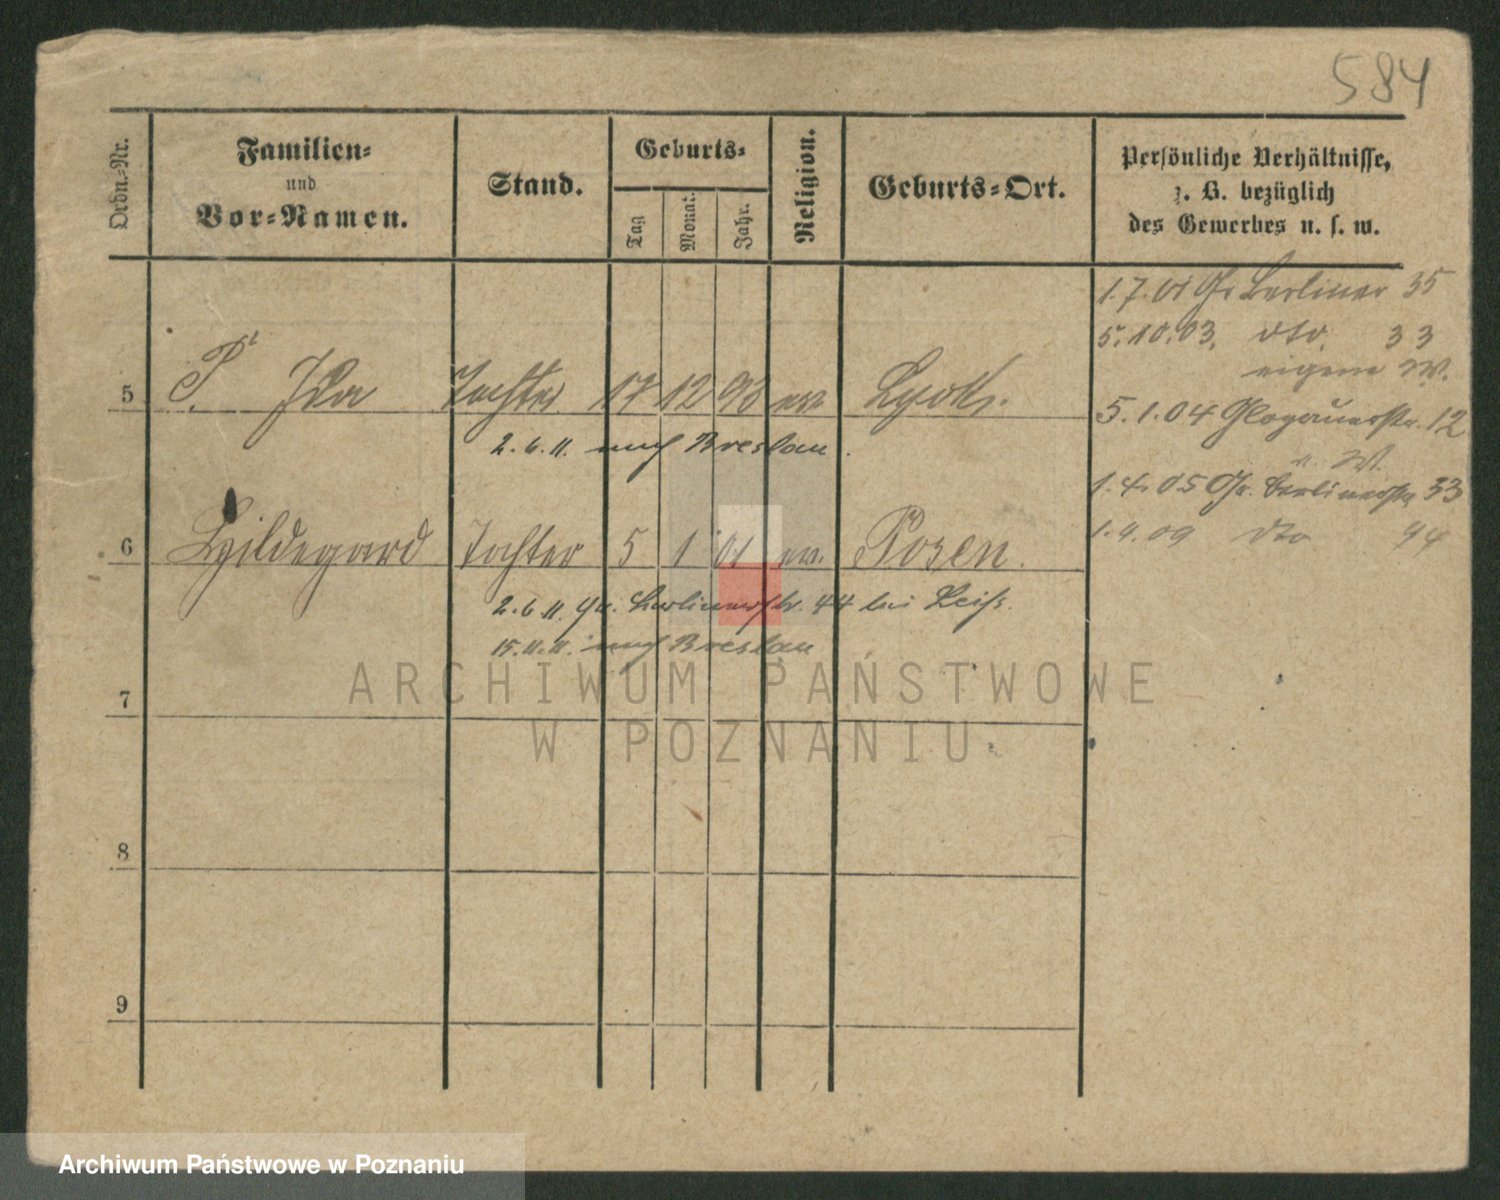 584
Ordn.-Nr.
Familien-
und
Vor-Namen.
Stand.
Geburts-
Tag
Monat.
Jahr.
Religion.
Geburts-Ort.
Persönliche Verhältnisse,
z. B. bezüglich
des Gewerbes u. s. w.
1.7.01 Gr Berliner 35
5.10.03. dto. 33
eigene W.
5 P. Ida Tochter 17 12 93 ev Lyck.
5.1.04 Glogauerstr. 12
2.6.11. nach Breslau.
W.
1.4.05 Gr. Berlinerstr 33
6 Hildegard Tochter 5 1 01 ev. Posen.
1.9.09 dto 44
2.6.11. Gr. Berlinerstr. 44 bei Leiß.
15.11.11. nach Breslau
7
8
9
ARCHIWUM PAŃSTWOWE
W POZNANIU
Archiwum Państwowe w Poznaniu